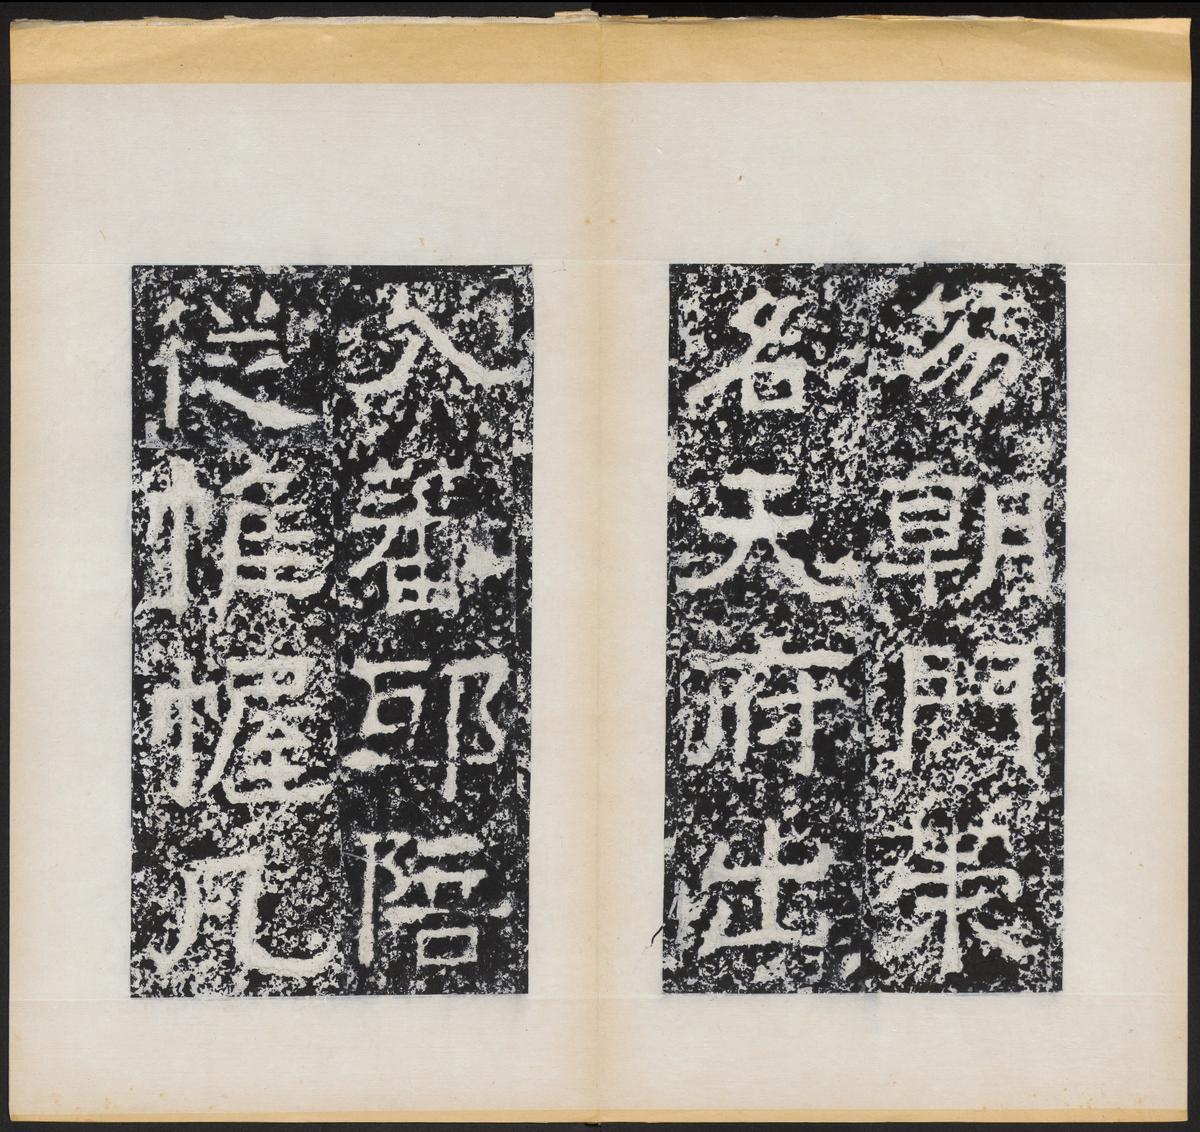 笏朝門策
名天府出
入蕃邸陪
從帷幄凡